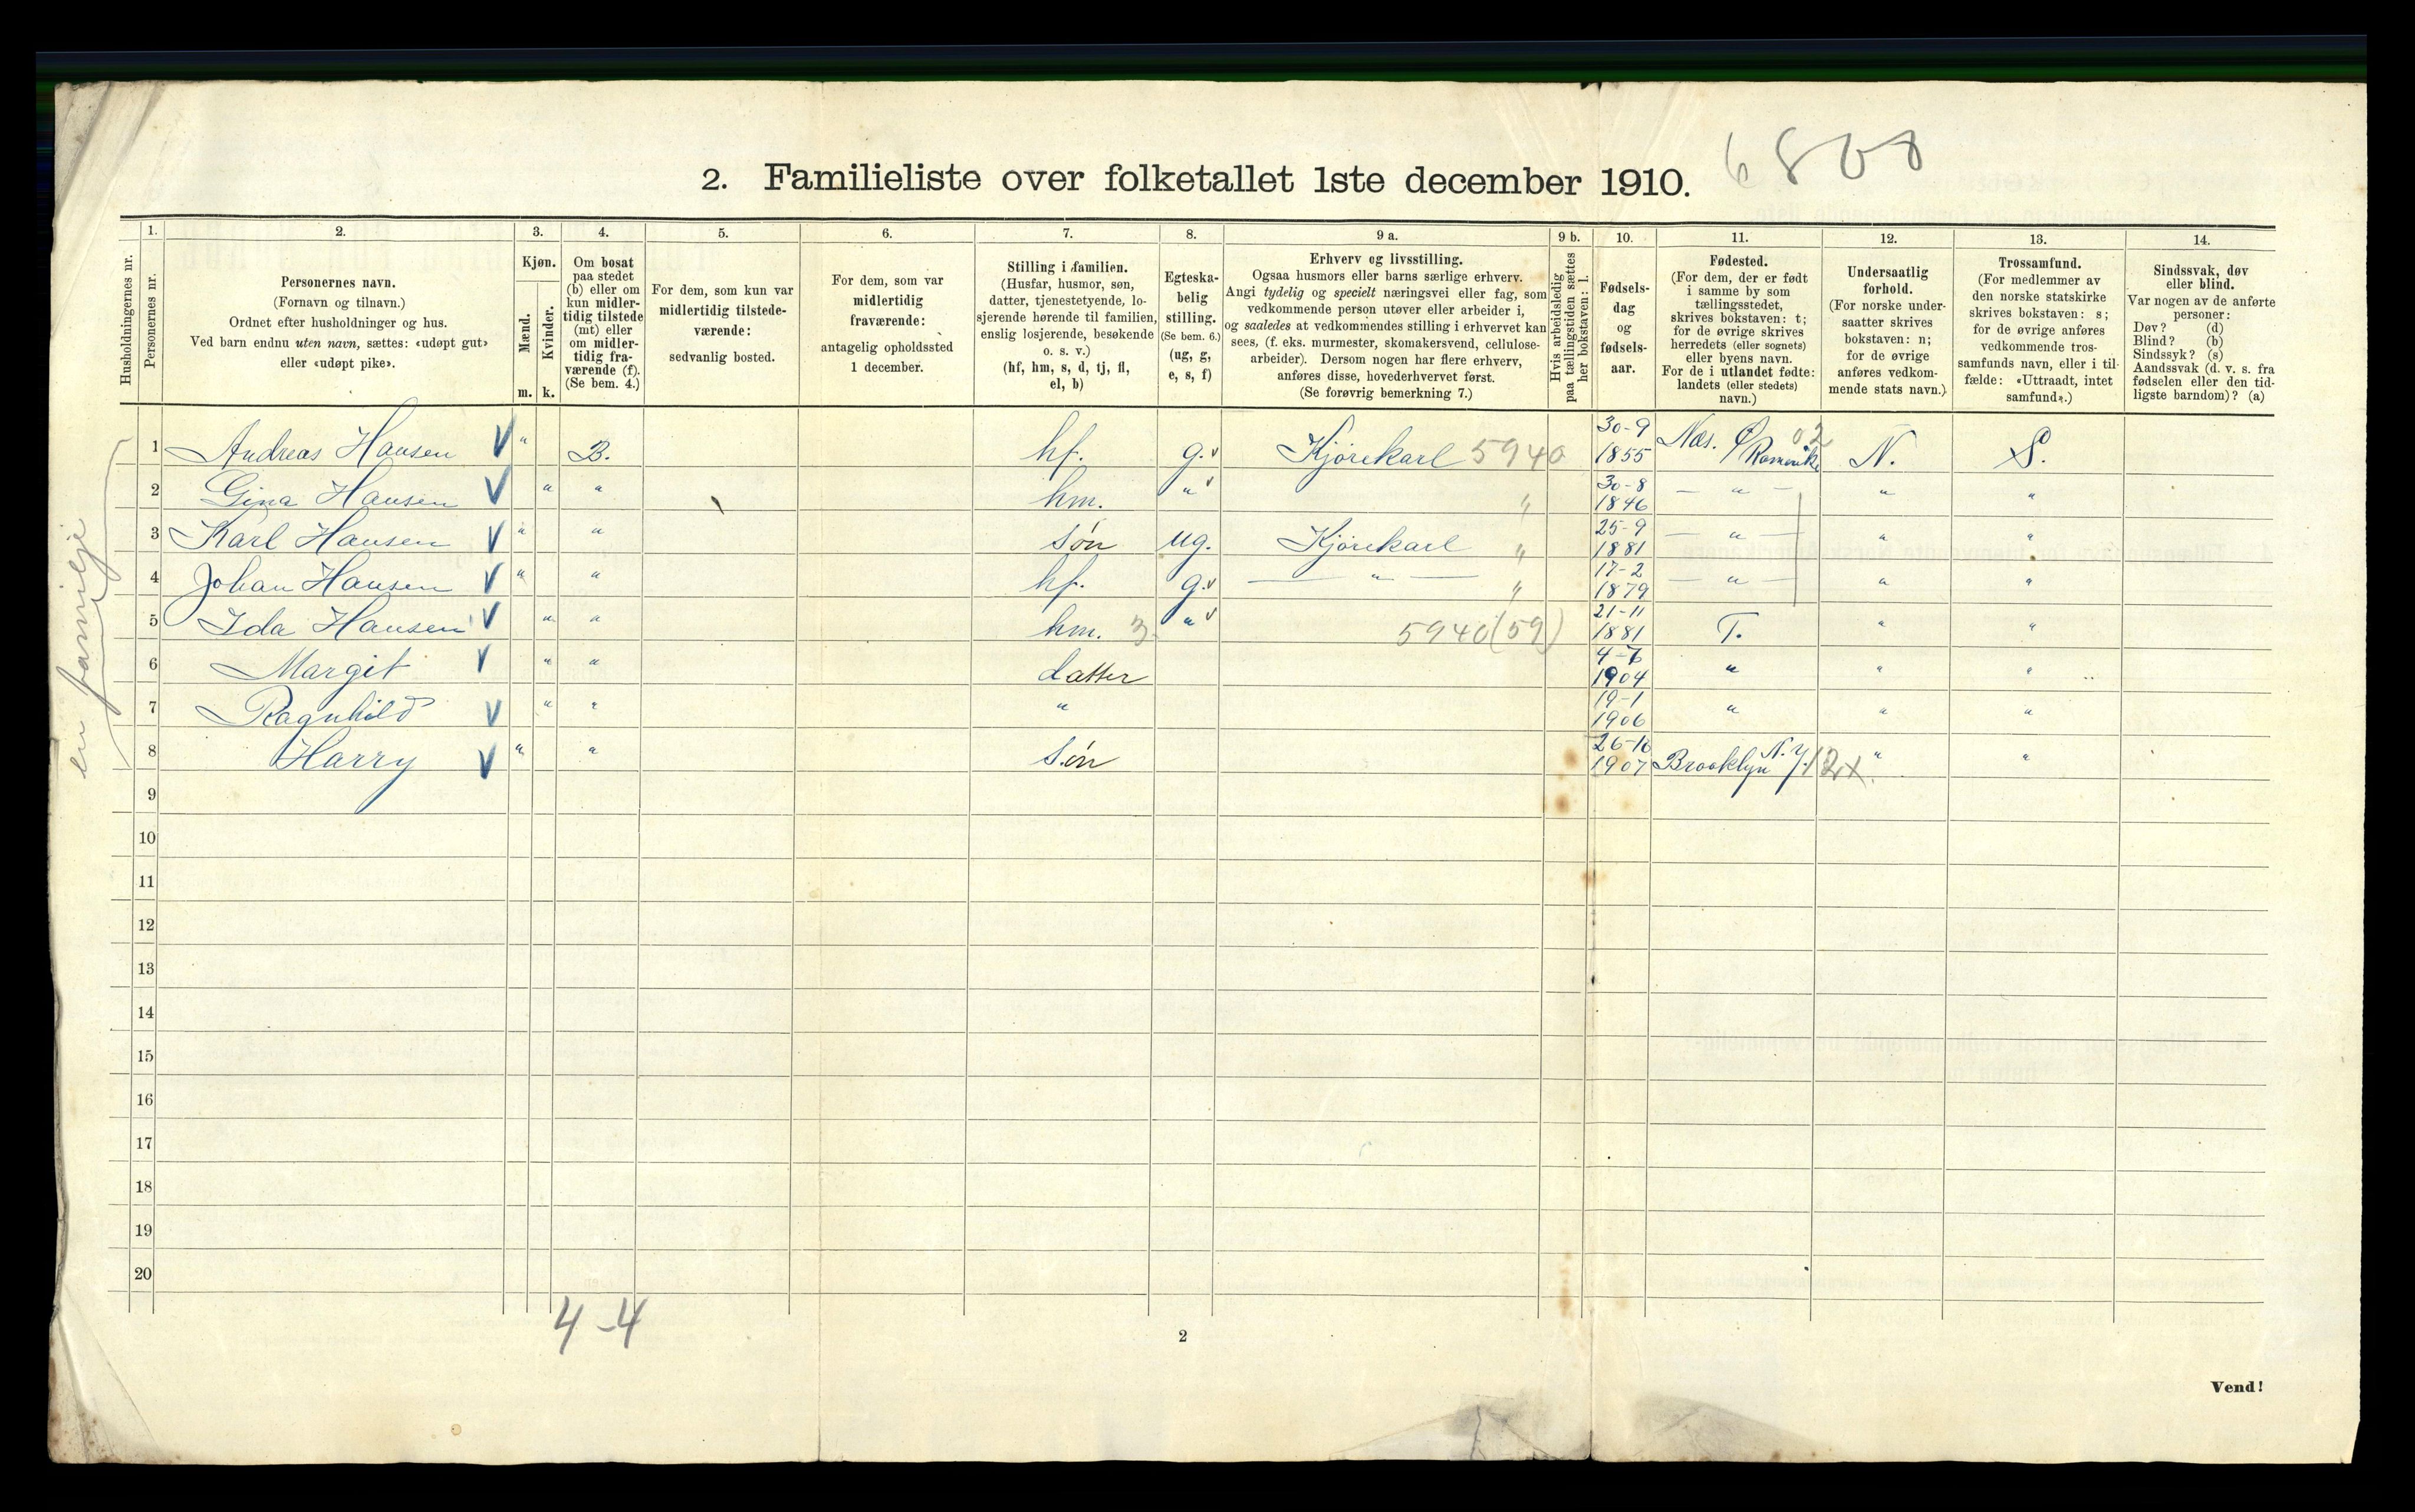 6808
2. Familieliste over folketallet 1ste december 1910.
Husholdningernes nr.
1.
Personernes nr.
2.
Personernes navn.
(Fornavn og tilnavn.)
Ordnet efter husholdninger og hus.
Ved barn endnu uten navn, sættes: «udøpt gut»
eller «udøpt pike».
3.
Kjøn.
Mænd.
Kvinder.
m. k.
4.
Om bosat
paa stedet
(b) eller om
kun midler-
tidig tilstede
(mt) eller
om midler-
tidig fra-
værende (f).
(Se bem. 4.)
5.
For dem, som kun var
midlertidig tilstede-
værende:
sedvanlig bosted.
6.
For dem, som var
midlertidig
fraværende:
antagelig opholdssted
1 december.
7.
Stilling i familien.
(Husfar, husmor, søn,
datter, tjenestetyende, lo-
sjerende hørende til familien,
enslig losjerende, besøkende
o. s. v.)
(hf, hm, s, d, tj, fl,
el, b)
8.
Egteska-
belig
stilling.
(Se bem. 6.)
(ug, g,
e, s, f)
9 a.
Erhverv og livsstilling.
Ogsaa husmors eller barns særlige erhverv.
Angi tydelig og specielt næringsvei eller fag, som
vedkommende person utøver eller arbeider i,
og saaledes at vedkommendes stilling i erhvervet kan
sees, (f. eks. murmester, skomakersvend, cellulose-
arbeider). Dersom nogen har flere erhverv,
anføres disse, hovederhvervet først.
(Se forøvrig bemerkning 7.)
9 b.
Hvis arbeidsledig
paa tællingstiden sættes
her bokstaven: l.
10.
Fødsels-
dag
og
fødsels-
aar.
11.
Fødested.
(For dem, der er født
i samme by som
tællingsstedet,
skrives bokstaven: t;
for de øvrige skrives
herredets (eller sognets)
eller byens navn.
For de i utlandet fødte:
landets (eller stedets)
navn.)
12.
Undersaatlig
forhold.
(For norske under-
saatter skrives
bokstaven: n;
for de øvrige
anføres vedkom-
mende stats navn.)
13.
Trossamfund.
(For medlemmer av
den norske statskirke
skrives bokstaven: s;
for de øvrige anføres
vedkommende tros-
samfunds navn, eller i til-
fælde: «Uttraadt, intet
samfund».)
14.
Sindssvak, døv
eller blind.
Var nogen av de anførte
personer:
Døv? (d)
Blind? (b)
Sindssyk? (s)
Aandssvak (d. v. s. fra
fødselen eller den tid-
ligste barndom)? (a)
en familje
1 Andreas Hansen V " B. hf. g. v Kjørekarl 5940 30-9 1855 Næs. Romerike 02 N. S.
2 Gina Hansen V " " hm. " v " 30-8 1846 — " — " "
3 Karl Hansen V " " søn ug. Kjørekarl " 25-9 1881 — " — " "
4 Johan Hansen V " " hf. g. v — " — " 17-2 1879 — " — " "
5 Ida Hansen V " " hm. 3 " v 5940 (59) 21-11 1881 T. " "
6 Margit V " " datter 1904 " " "
7 Ragnhild V " " " 19-1 1906 " " "
8 Harry V " " søn 1907 Brooklyn N. Y. " "
9
10
11
12
13
14
15
16
17
18
19
20
4-4
2
Vend!